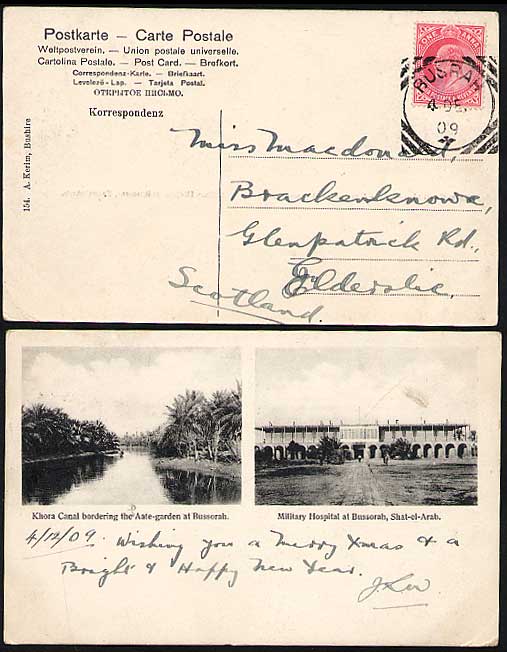 Postkarte — Carte Postale
Weltpostverein. — Union postale universelle.
Cartolina Postale. — Post Card. — Brefkort.
Correspondenz-Karte. — Briefkaart.
Levelező-Lap. — Tarjeta Postal.
ОТКРЫТОЕ ПИСЬМО.
Korrespondenz
154. A. Kerim, Bushire
ONE ANNA
BUSRAH
4 DE
09
Miss Macdonald,
Brackenknowe,
Glenpatrick Rd.,
Elderslie,
Scotland.
Khora Canal bordering the Aate-garden at Bussorah.
Military Hospital at Bussorah, Shat-el-Arab.
4/12/09. Wishing you a Merry Xmas & a
Bright & Happy New Year.